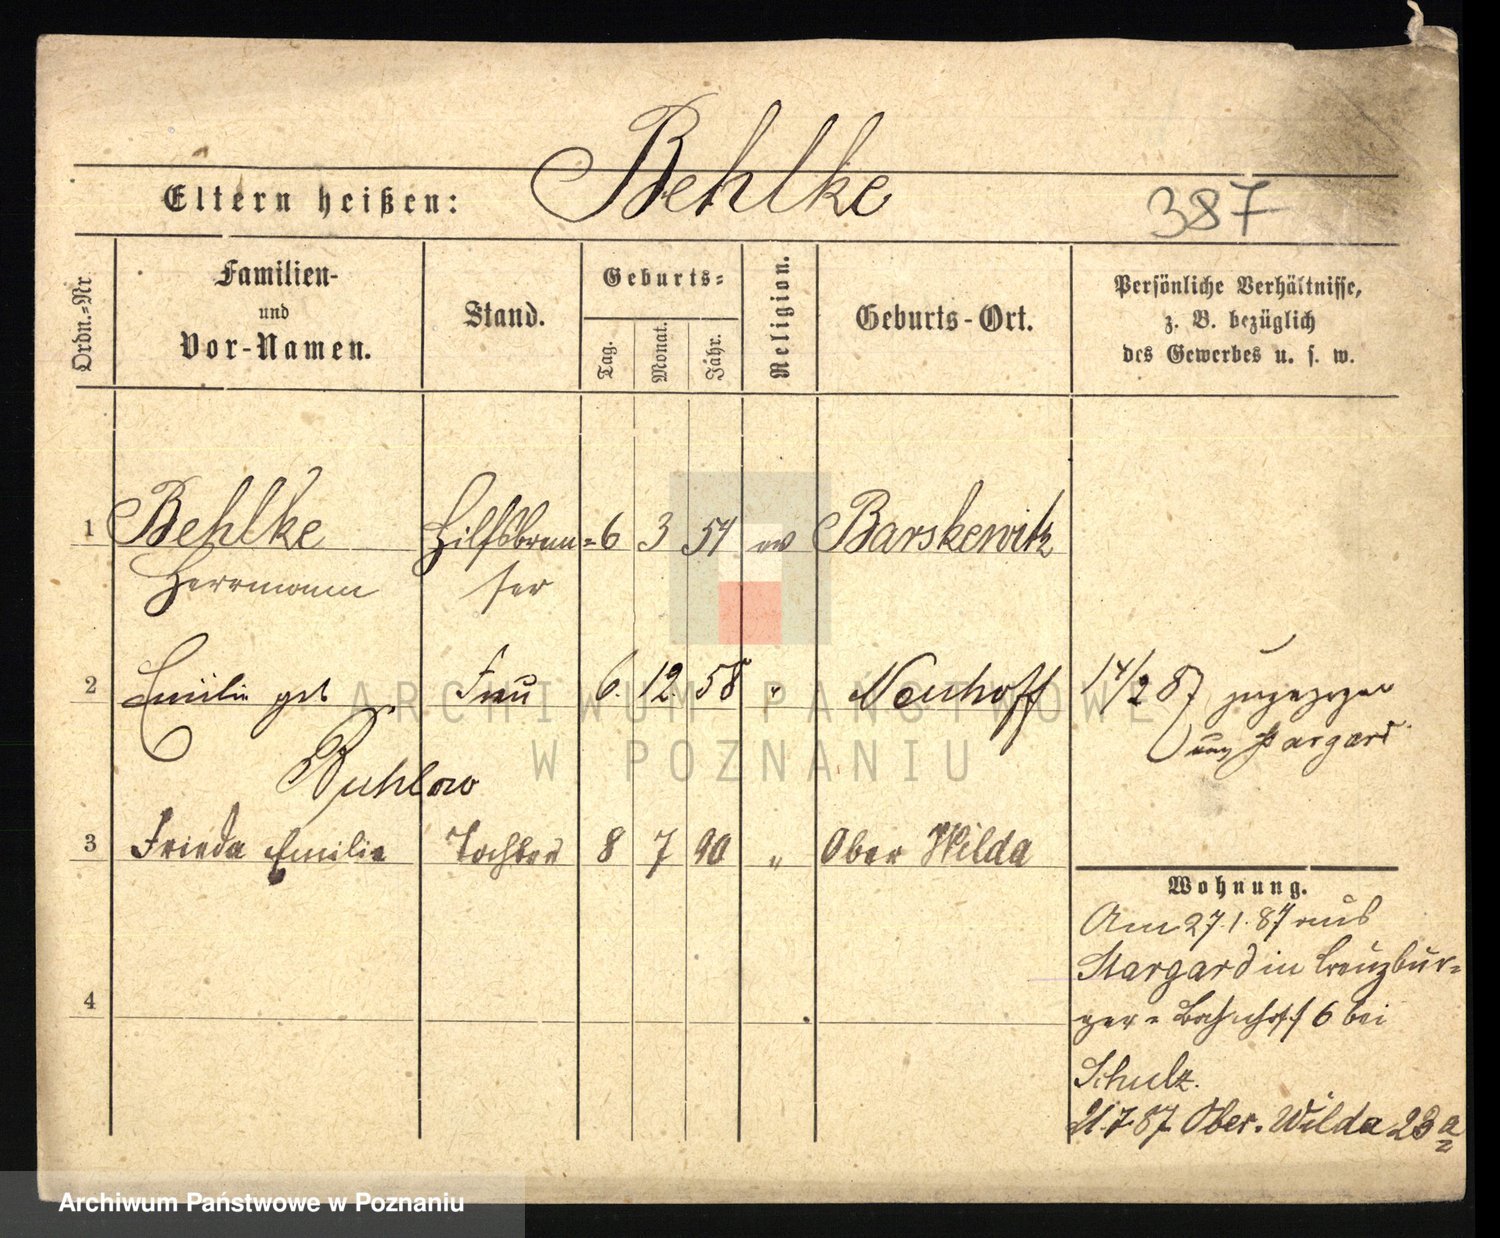 Behlke
Eltern heißen:
387
Ordn.=Nr.
Familien-
und
Vor-Namen.
Stand.
Geburts=
Tag.
Monat.
Jahr.
Religion.
Geburts-Ort.
Persönliche Verhältnisse,
z. B. bezüglich
des Gewerbes u. s. w.
1 Behlke Hilfsbrem= 6 3 54 ev Barskewitz
Herrmann ser
2 Emilie geb Frau 6. 12 58 " Neuhoff 14/2 87 zugezogen
Buhlow
von Stargard
3 Frieda Emilie Tochter 8 7 90 " Ober Wilda
Wohnung.
Am 27.1.87 aus
Stargard in Creuzbur=
ger=Bahnhoff 6 bei
Schulz.
21.7.87 Ober. Wilda 23a
4
ARCHIWUM PAŃSTWOWE
W POZNANIU
Archiwum Państwowe w Poznaniu